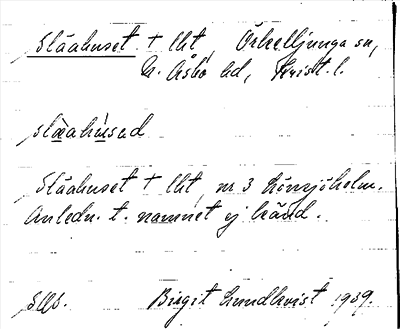 Släahuset † lht, Örkelljunga sn,
N. Åsbo hd, Krist. l.
slæahùsəd
Släahuset † lht, nr 3 Lönsjöholm.
Anledn. t. namnet ej känd.
Birgit Lundkvist 1939.